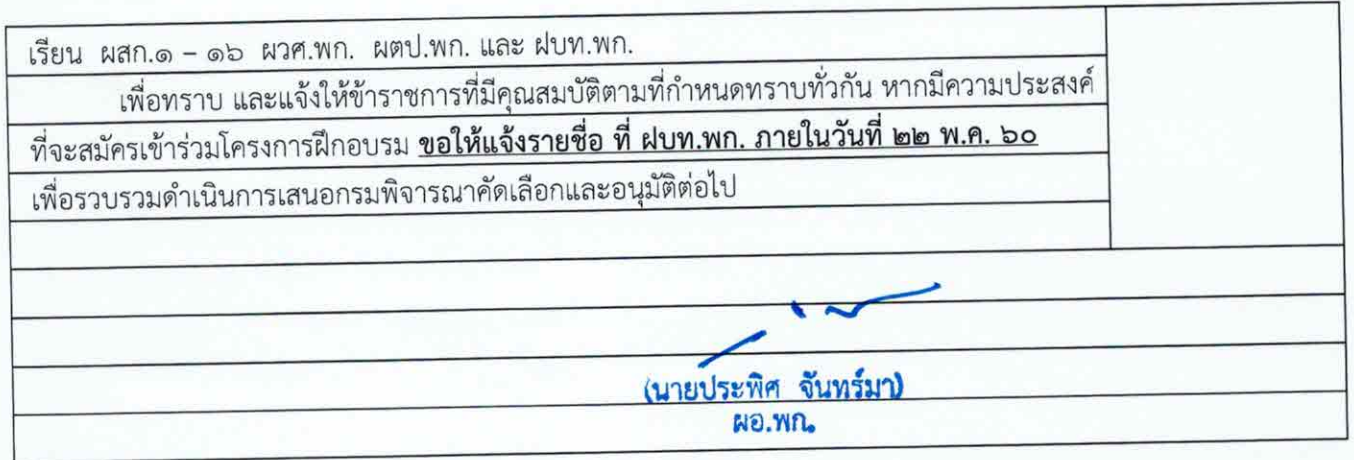 เรียน ผสก.๑ – ๑๖ ผวศ.พก. ผตป.พก. และ ฝบท.พก.
เพื่อทราบ และแจ้งให้ข้าราชการที่มีคุณสมบัติตามที่กำหนดทราบทั่วกัน หากมีความประสงค์
ที่จะสมัครเข้าร่วมโครงการฝึกอบรม ขอให้แจ้งรายชื่อ ที่ ฝบท.พก. ภายในวันที่ ๒๒ พ.ค. ๖๐
เพื่อรวบรวมดำเนินการเสนอกรมพิจารณาคัดเลือกและอนุมัติต่อไป
(นายประพิศ จันทร์มา)
ผอ.พก.